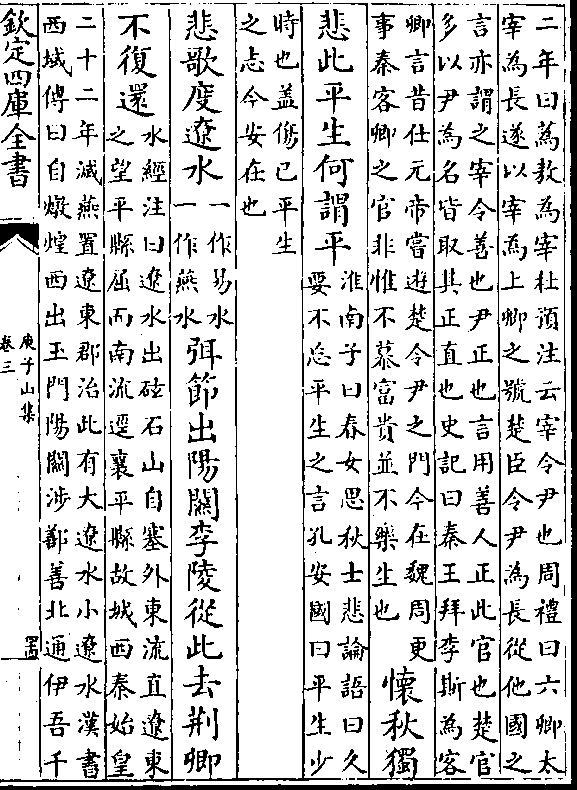 二年曰蒍敖為宰杜預注云宰令尹也周禮曰六卿太
宰為長遂以宰為上卿之號楚臣令尹為長從他國之
言亦謂之宰令善也尹正也言用善人正此官也楚官
多以尹為名皆取其正直也史記曰秦王拜李斯為客
卿言昔仕元帝嘗遊楚令尹之門今在魏周更
事秦客卿之官非惟不慕富貴並不樂生也
懷秋獨
悲此平生何謂平
淮南子曰春女思秋士悲論語曰久
要不忘平生之言孔安國曰平生少
時也蓋傷已平生
之志今安在也
悲歌度遼水
一作易水
一作燕水
弭節出陽關李陵從此去荆卿
不復還
水經注曰遼水出砫石山自塞外東流直遼東
之望平縣屈而南流逕襄平縣故城西秦始皇
二十二年滅燕置遼東郡治此有大遼水小遼水漢書
西域傳曰自燉煌西出玉門陽關涉鄯善北通伊吾千
欽定四庫全書
庾子山集
卷三